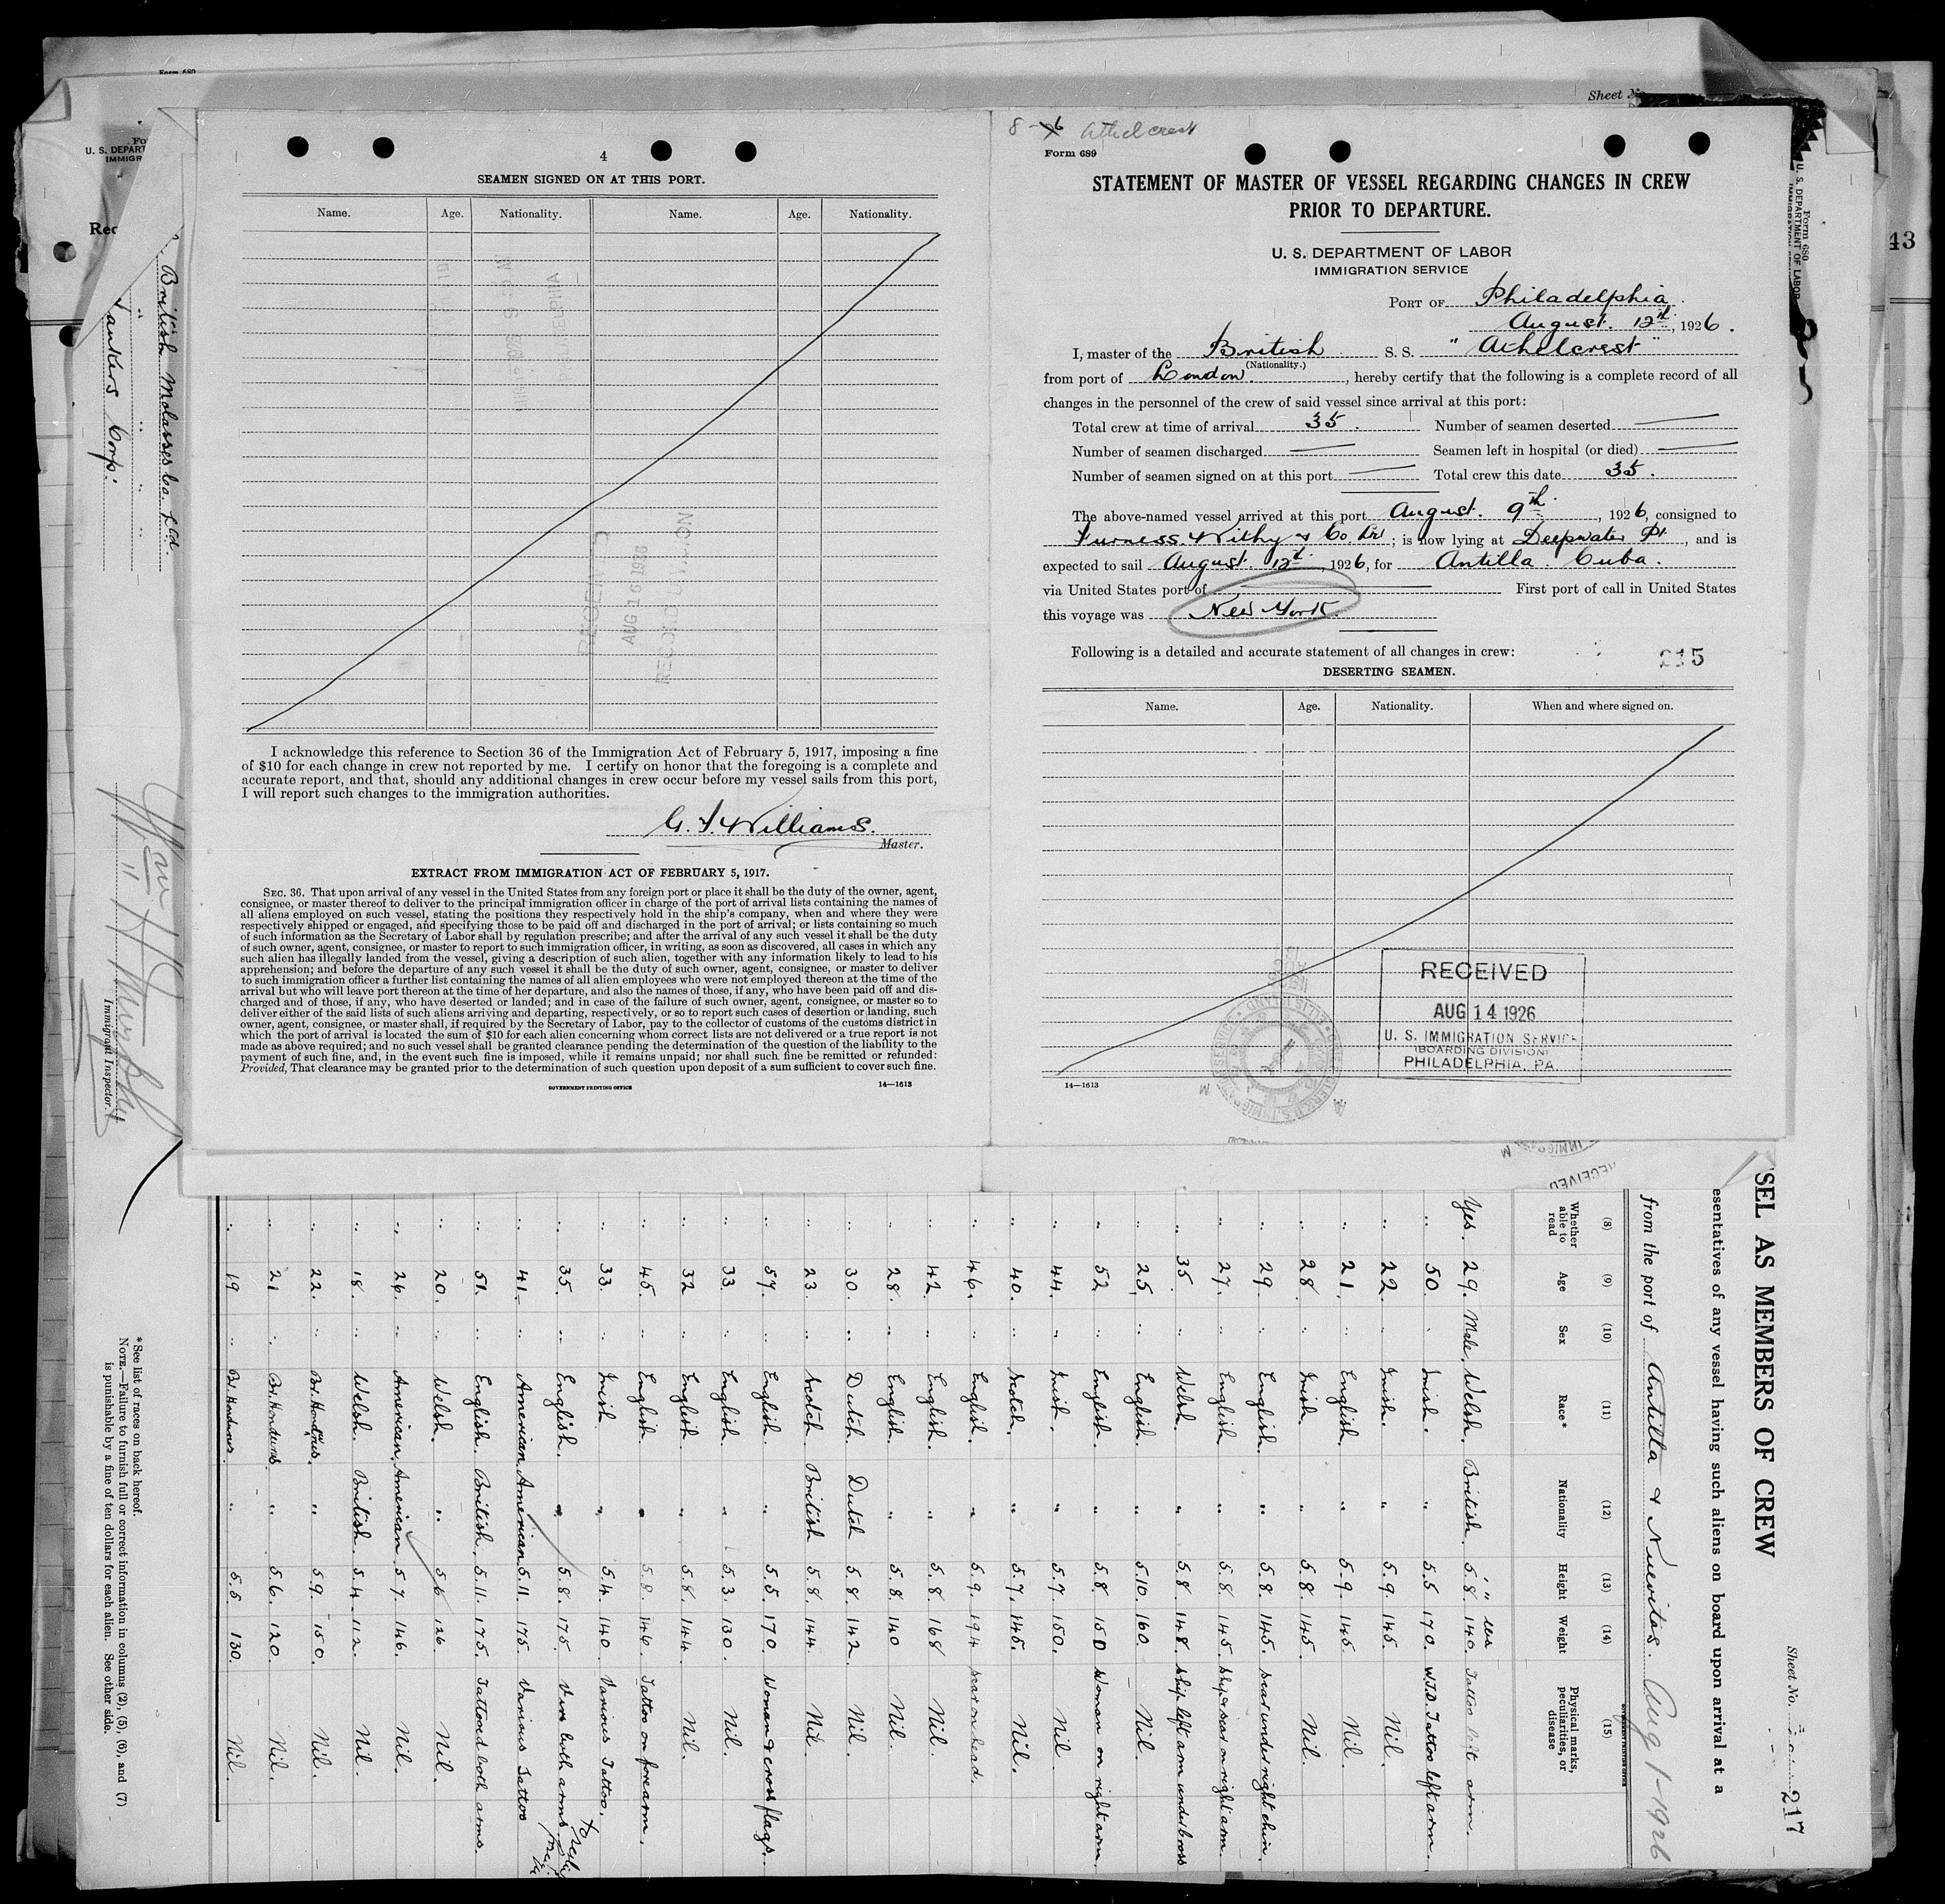 Form 680
Sheet No
8-26 Athelcrest
Form 689
STATEMENT OF MASTER OF VESSEL REGARDING CHANGES IN CREW
PRIOR TO DEPARTURE.
U. S. DEPARTMENT OF LABOR
IMMIGRATION SERVICE
PORT OF Philadelphia
August. 12th, 1926.
I, master of the British S. S. "Athelcrest"
(Nationality.)
from port of London, hereby certify that the following is a complete record of all
changes in the personnel of the crew of said vessel since arrival at this port:
Total crew at time of arrival 35. Number of seamen deserted —
Number of seamen discharged — Seamen left in hospital (or died) —
Number of seamen signed on at this port — Total crew this date 35.
The above-named vessel arrived at this port August. 9th, 1926, consigned to
Furness Withy & Co Ltd; is now lying at Deepwater Pt., and is
expected to sail August 12th, 1926, for Antilla. Cuba.
via United States port of — First port of call in United States
this voyage was New York.
Following is a detailed and accurate statement of all changes in crew:
215
DESERTING SEAMEN.
Name. Age. Nationality. When and where signed on.
RECEIVED
AUG 14 1926
U. S. IMMIGRATION SERVICE
(BOARDING DIVISION)
PHILADELPHIA, PA.
14—1613
4
SEAMEN SIGNED ON AT THIS PORT.
Name. Age. Nationality. Name. Age. Nationality.
AUG 16 1926
I acknowledge this reference to Section 36 of the Immigration Act of February 5, 1917, imposing a fine
of $10 for each change in crew not reported by me. I certify on honor that the foregoing is a complete and
accurate report, and that, should any additional changes in crew occur before my vessel sails from this port,
I will report such changes to the immigration authorities.
G. J. Williams.
Master.
EXTRACT FROM IMMIGRATION ACT OF FEBRUARY 5, 1917.
SEC. 36. That upon arrival of any vessel in the United States from any foreign port or place it shall be the duty of the owner, agent,
consignee, or master thereof to deliver to the principal immigration officer in charge of the port of arrival lists containing the names of
all aliens employed on such vessel, stating the positions they respectively hold in the ship's company, when and where they were
respectively shipped or engaged, and specifying those to be paid off and discharged in the port of arrival; or lists containing so much
of such information as the Secretary of Labor shall by regulation prescribe; and after the arrival of any such vessel it shall be the duty
of such owner, agent, consignee, or master to report to such immigration officer, in writing, as soon as discovered, all cases in which any
such alien has illegally landed from the vessel, giving a description of such alien, together with any information likely to lead to his
apprehension; and before the departure of any such vessel it shall be the duty of such owner, agent, consignee, or master to deliver
to such immigration officer a further list containing the names of all alien employees who were not employed thereon at the time of the
arrival but who will leave port thereon at the time of her departure, and also the names of those, if any, who have been paid off and dis-
charged and of those, if any, who have deserted or landed; and in case of the failure of such owner, agent, consignee, or master so to
deliver either of the said lists of such aliens arriving and departing, respectively, or so to report such cases of desertion or landing, such
owner, agent, consignee, or master shall, if required by the Secretary of Labor, pay to the collector of customs of the customs district in
which the port of arrival is located the sum of $10 for each alien concerning whom correct lists are not delivered or a true report is not
made as above required; and no such vessel shall be granted clearance pending the determination of the question of the liability to the
payment of such fine, and, in the event such fine is imposed, while it remains unpaid; nor shall such fine be remitted or refunded:
Provided, That clearance may be granted prior to the determination of such question upon deposit of a sum sufficient to cover such fine.
GOVERNMENT PRINTING OFFICE
14—1613
U. S. DEPART
IMMIGR
Rec
British Molasses Co. Ltd.
Tankers Corp:
Immigrant Inspector.
43
Form 680
U. S. DEPARTMENT OF LABOR
Sheet No. 217
SEL AS MEMBERS OF CREW
esentatives of any vessel having such aliens on board upon arrival at a
from the port of Antilla & Nuevitas. Aug 1-1926
(8) (9) (10) (11) (12) (13) (14) (15)
Whether able to read Age Sex Race* Nationality Height Weight Physical marks, peculiarities, or disease
Yes. 29. Male. Welsh. British. 5.8. 140. Tattoo left arm.
" 50. " Irish. " 5.5. 170. W.J.D. Tattoo left arm.
" 22. " Irish. " 5.9. 145. Nil.
" 21. " English. " 5.9. 145. Nil.
" 28. " Irish. " 5.8. 145. Nil.
" 29. " English. " 5.8. 145. Scar under right chin.
" 27. " English " 5.8. 145. Slip scar on right arm.
" 35. " Welsh. " 5.8. 148. Ship left arm under cross
" 25. " English. " 5.10. 160. Nil.
" 52. " English. " 5.8. 150 Woman on right arm.
" 44. " Irish. " 5.7. 150. Nil.
" 40. " Scotch. " 5.7. 145. Nil.
" 46. " English. " 5.9. 194. Scar on head.
" 42. " English. " 5.8. 168 Nil.
" 28. " English. " 5.8. 140 Nil.
" 30. " Dutch. Dutch 5.8. 142. Nil.
" 23. " Scotch. British 5.8. 144. Nil.
" 57. " English. " 5.5. 170. Woman & cross flags.
" 33. " English. " 5.3. 130. Nil.
" 32 " English. " 5.8. 144. Nil.
" 45. " English. " 5.8. 146. Tattoo on forearm.
" 33. " Irish. " 5.4. 140. Various Tattoo.
" 35. " English. " 5.8. 175. both arms
" 41. " American. American. 5.11. 175. Various Tattoo
" 51. " English. British. 5.11. 175. Tattooed both arms.
" 20. " Welsh. " 5.6 126. Nil.
" 26. " American. American. 5.7. 146. Nil.
" 18. " Welsh. British. 5.4. 112. Nil.
" 22. " Br. Honduras. " 5.9. 150. Nil.
" 21. " Br. Honduras. " 5.6. 120. Nil.
" 19 " Br. Honduras. " 5.5 130. Nil.
*See list of races on back hereof.
NOTE.—Failure to furnish full or correct information in columns (2), (5), (6), and (7)
is punishable by a fine of ten dollars for each alien. See other side.